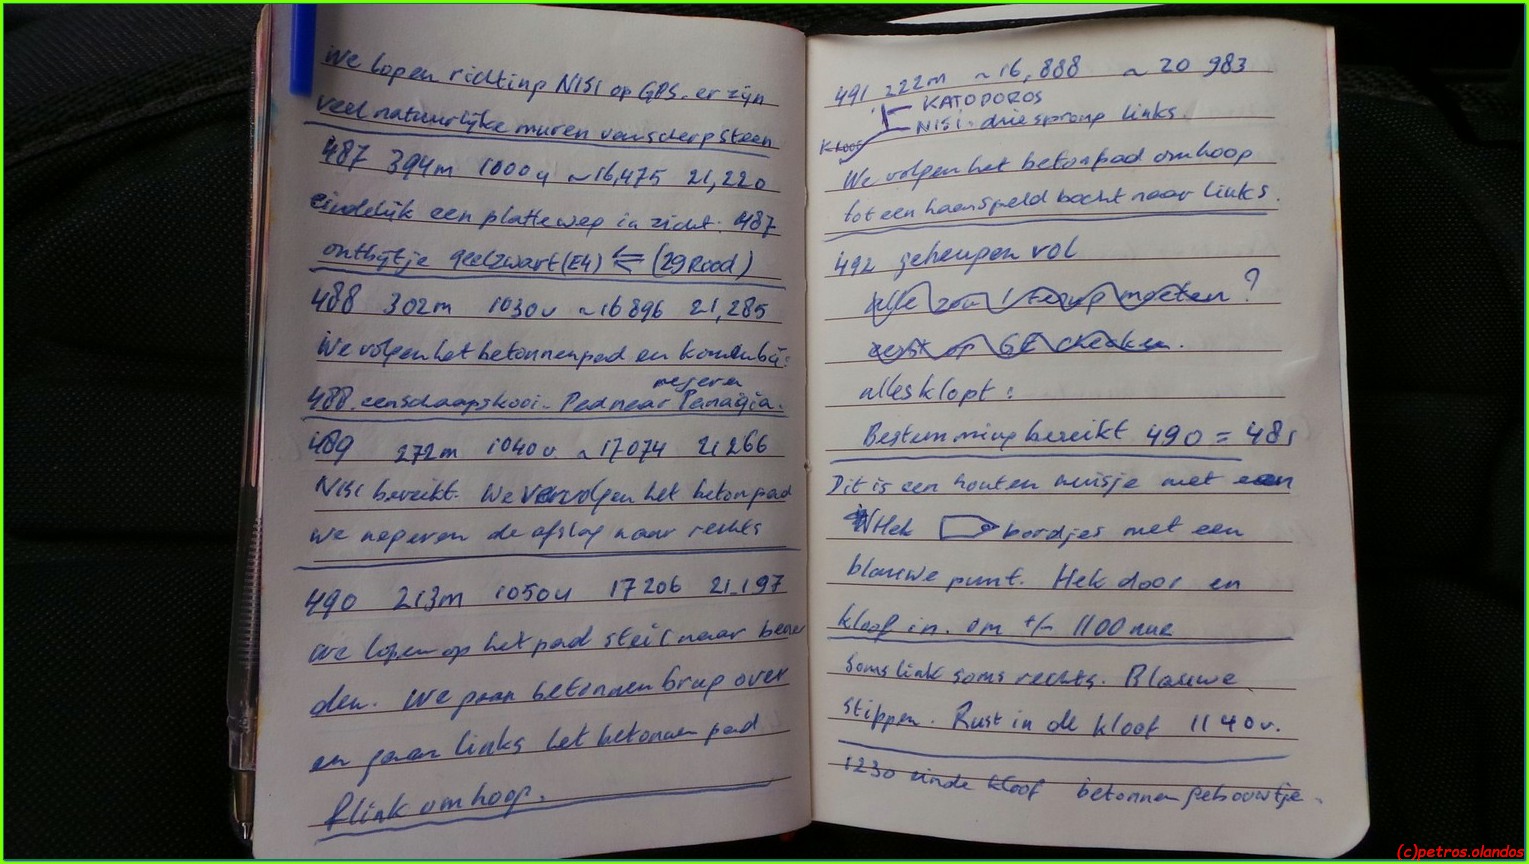 We lopen richting NISI op GPS. er zijn
veel natuurlijke muren van scherp steen
487 394m 1000u ~16,475 21,220
eindelijk een platteweg in zicht. 487
ontbijtje geelzwart (E4) ⇐ (29 Rood)
488 302m 1030u ~16896 21,285
We volgen het betonnenpad en komen bij:
negeren
488. een schaapskooi - Pad naar Panagia.
489 272m 1040u ~17074 21266
NISI bereikt. We vervolgen het betonpad
we negeren de afslag naar rechts
490 213m 1050u 17206 21.197
We lopen op het pad steil naar bene
den. We gaan betonnen brug over
en gaan links het betonnen pad
flink omhoog.
491 222m ~16,888 ~ 20 983
KATOPOROS
NISI - driesprong links
Kloof
We volgen het betonpad omhoog
tot een haarspeld bocht naar links.
492 geheugen vol
alles klopt:
Bestemming bereikt 490 = 485
Dit is een houten huisje met een
Hek bordjes met een
blauwe punt. Hek door en
kloof in. 0m +/- 1100 uur
Soms link soms rechts. Blauwe
stippen. Rust in de kloof 1140u.
1230 einde kloof betonnen gebouwtje.
(c)petros.olandos